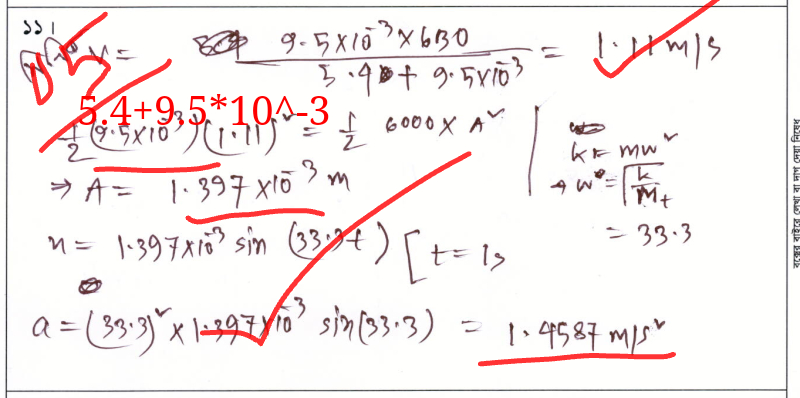 ১১।
05 v = 9.5×10⁻³×630 / 5.4 + 9.5×10⁻³ = 1.11 m/s
5.4+9.5*10^-3
1/2 (9.5×10⁻³)(1.11)² = 1/2 6000 × A²
k = mw²
⇒ A = 1.397×10⁻³ m
→ w = √k/Mt
= 33.3
x = 1.397×10⁻³ sin (33.3t) [t = 1s
a = (33.3)² × 1.397×10⁻³ sin(33.3) = 1.4587 m/s²
বক্সের বাইরে লেখা বা দাগ দেয়া নিষেধ